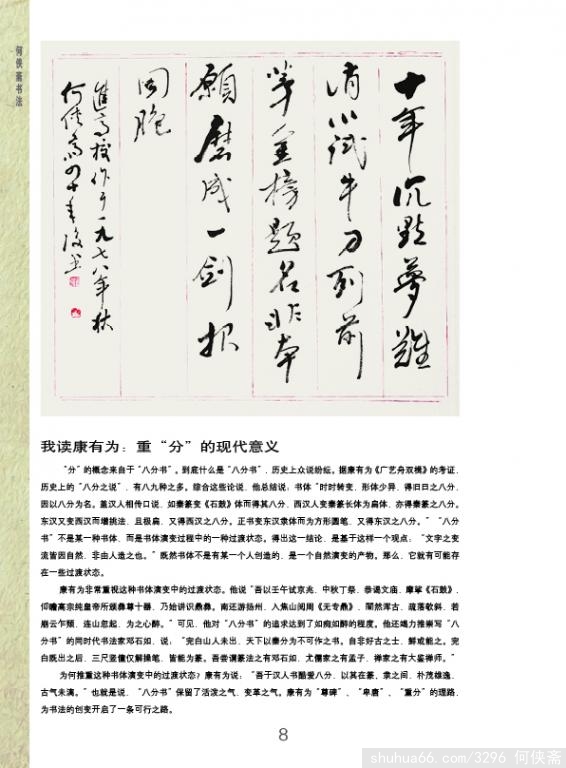 何侠斋书法
十年沉默梦难
消小试牛刀列前
茅金榜题名非本
愿磨成一剑报
国胞
进高校作于一九七八年秋
何侠斋四十年后书
我读康有为：重“分”的现代意义
“分”的概念来自于“八分书”。到底什么是“八分书”，历史上众说纷纭。据康有为《广艺舟双楫》的考证，
历史上的“八分之说”，有八九种之多。综合这些论说，他总结说：书体“时时转变，形体少异，得旧日之八分，
因以八分为名。盖汉人相传口说，如秦篆变《石鼓》体而得其八分，西汉人变秦篆长体为扁体，亦得秦篆之八分。
东汉又变西汉而增挑法，且极扁，又得西汉之八分。正书变东汉隶体而为方形圆笔，又得东汉之八分。”“八分
书”不是某一种书体，而是书体演变过程中的一种过渡状态。得出这一结论，是基于这样一个观点：“文字之变
流皆因自然，非由人造之也。”既然书体不是有某一个人创造的，是一个自然演变的产物。那么，它就有可能存
在一些过渡状态。
康有为非常重视这种书体演变中的过渡状态。他说“吾以壬午试京兆，中秋丁祭，恭谒文庙，摩挲《石鼓》，
仰瞻高宗纯皇帝所颁彝尊十器，乃始讲识鼎彝。南还游扬州，入焦山阅周《无专鼎》，闇然浑古，疏落欹斜，若
崩云乍颓，连山忽起，为之心醉。”可见，他对“八分书”的追求达到了如痴如醉的程度。他还竭力推崇写“八
分书”的同时代书法家邓石如，说：“完白山人未出，天下以秦分为不可作之书。自非好古之士，鲜或能之。完
白既出之后，三尺竖僮仅解操笔，皆能为篆。吾尝谓篆法之有邓石如，尤儒家之有孟子，禅家之有大鉴禅师。”
为何推重这种书体演变中的过渡状态？康有为说：“吾于汉人书酷爱八分，以其在篆、隶之间，朴茂雄逸，
古气未漓。”也就是说，“八分书”保留了活泼之气、变革之气。康有为“尊碑”、“卑唐”、“重分”的理路，
为书法的创变开启了一条可行之路。
8
shuhua66.com/3296 何侠斋